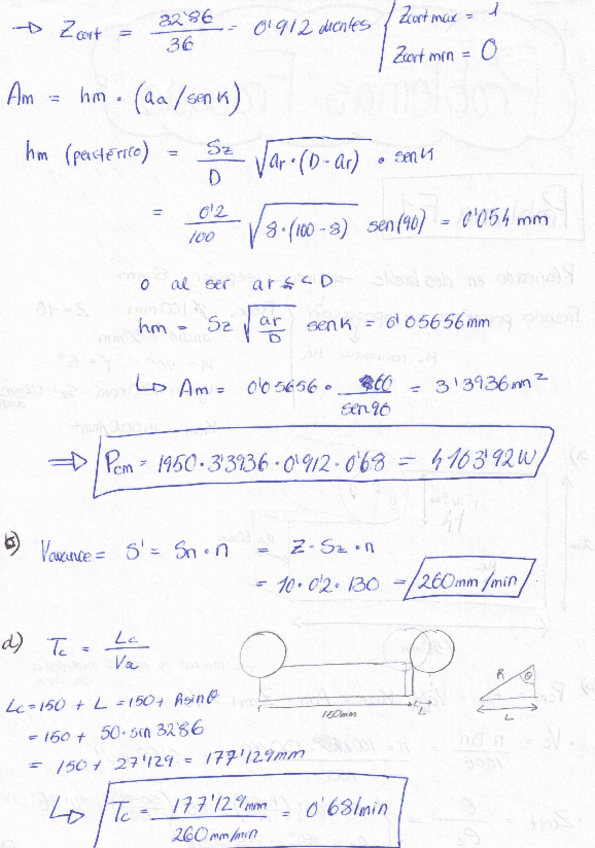 → Zcort = 32'86/36 = 0'912 dientes { Zcort max = 1
Zcort min = 0
Am = hm · (aa/senK)
hm (periférico) = Sz/D √(ar·(D-ar)) · senK
= 0'2/100 √(8·(100-8)) sen(90) = 0'054 mm
o al ser ar << D
hm = Sz √(ar/D) senK = 0'05656mm
↳ Am = 0'05656 · 60/sen90 = 3'3936mm²
⇒ Pcm = 1950·3'3936·0'912·0'68 = 4103'92W
Vavance = S' = Sn·n = Z·Sz·n
= 10·0'2·130 = 260mm/min
d) Tc = Lc/Va
R θ
150mm L L
Lc = 150 + L = 150 + R sinθ
= 150 + 50·sin 32'86
= 150 + 27'129 = 177'129mm
↳ Tc = 177'129mm / 260mm/min = 0'681min